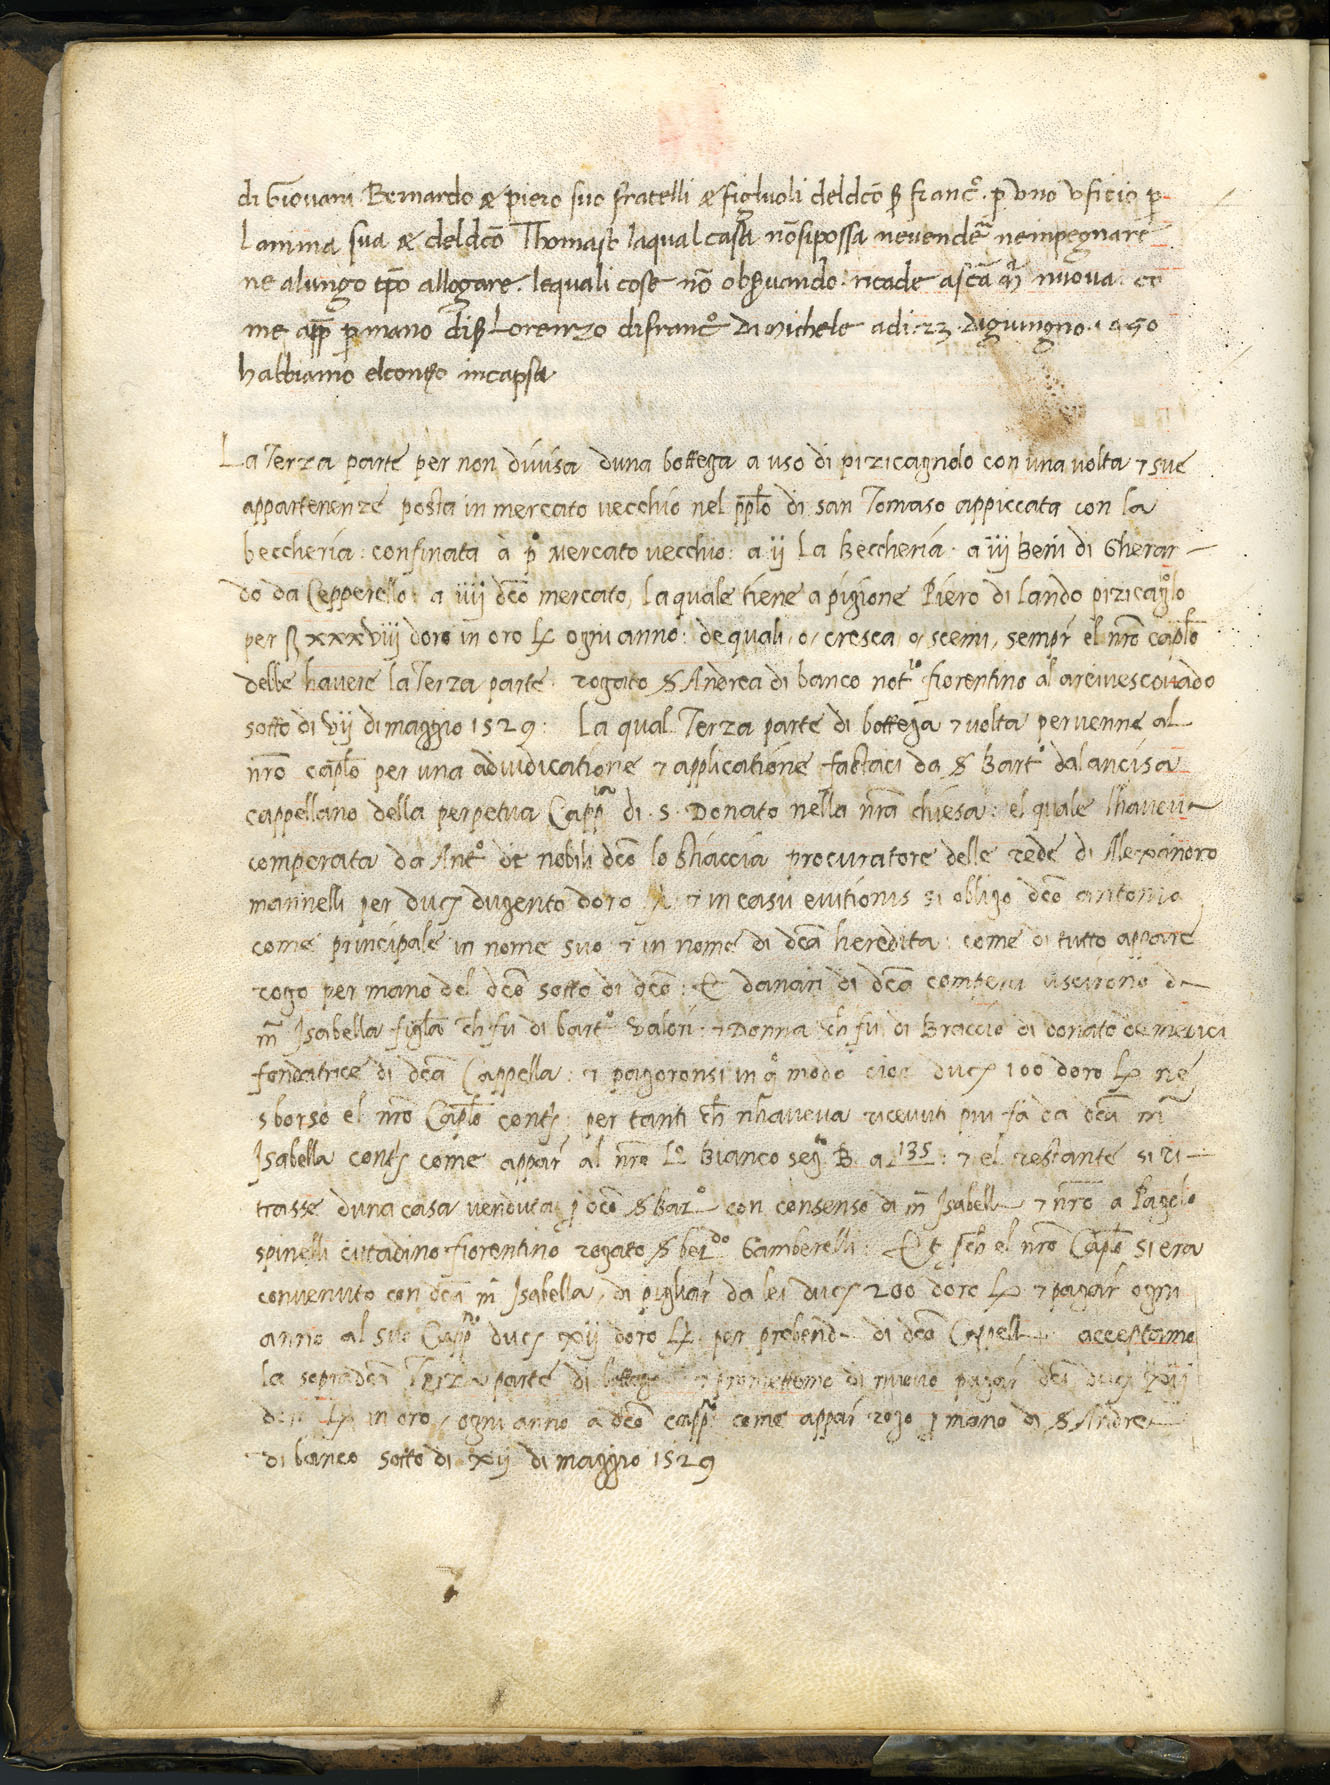 di Giovani Bernardo & piero suo fratelli & figluoli deldcō s̄ francº. p̄ vno vficio p̄
Lanima sua & deldcō Thomaso laqual casa nōsipossa nevendeř neinpegnare
ne alungo tpō allogare. lequali cose nō obseruando. ricade ascā mª nuova. co
me app̄ p̄ mano di s̄ Lorenzo difrancº di michele adi. 23. digiungno. 1450
habbiamo elcontº incapsa.
La Terza parte per non divisa duna bottega a uso di pizicagnolo con una volta & sue
appartenenze posta in mercato vecchio nel pp̄lo di san Tomaso appiccata con la
beccheria: confinata à pº Mercato vecchio: a ij La Beccheria. a iij Beni di Gherar-
do da Cepperello: a iiij dcō mercato, la quale tiene a pigione Piero di Lando pizicagºlo
per ß xxxviij doro in oro Lx ogni anno: de quali, o, cresca o, scemi, sempr̄ el nr̄o cap̄lo
debbe havere la Terza parte. rogato S Andrea di banco notrº fiorentino al arcivescovado
sotto di vij di maggio 1529: La qual Terza parte di bottega & volta pervenne al
nr̄o cap̄lo per una adiudicatione & applicatione factaci da S Bartº dalancisa
cappellano della perpetua Cappª di .S. Donato nella nr̄a chiesa: el quale lhaveva
comperata da Antº de nobili dcō lo Stiaccia procuratore delle rede di Alexandro
mannelli per ducͭ dugento doro Lx & in casu evitionis si obligo dcō antonio
come principale in nome suo & in nome di dcā heredita: come di tutto appare
rogo per mano del dcō sotto di dcō: Et danari di dcā compera uscirono da
mª Isabella figl̄a ch̄ fu di bartº Valori: & Donna ch̄ fu di Braccio di donato de medici
fondatrice di dcā Cappella: & pagoronsi in qº modo cioe ducͭ 100 doro Lx ne
sborso el nr̄o Cap̄lo contͭ: per tanti ch̄ nhaveva ricevuti piu fa da dcā mª
Isabella contͭ come appar̄ al nr̄o Lº Bianco segº B. a 135: & el restante si ri-
trasse duna casa venduta p̄ dcō S Barº con consenso di mª Isabella & nr̄o a Pagolo
spinelli cittadino fiorentino rogato S berdº Gamberelli: Et p̄ch̄ el nr̄o Cap̄lo si era
convenuto con dcā mª Isabella, di pigliar̄ da lei ducͭ 200 doro Lx & pagar̄ ogni
anno al suo Cappº ducͭ xij doro Lx per probenda di dcā Cappella acceptamo
la sopradcā Terza parte di bottega & promettemo di nuovo pagar̄ dcī ducͭ xij
doro Lx in oro, ogni anno a dcō cappº come appar̄ rogo p̄ mano di S Andrea
di banco sotto di xij di maggio 1529